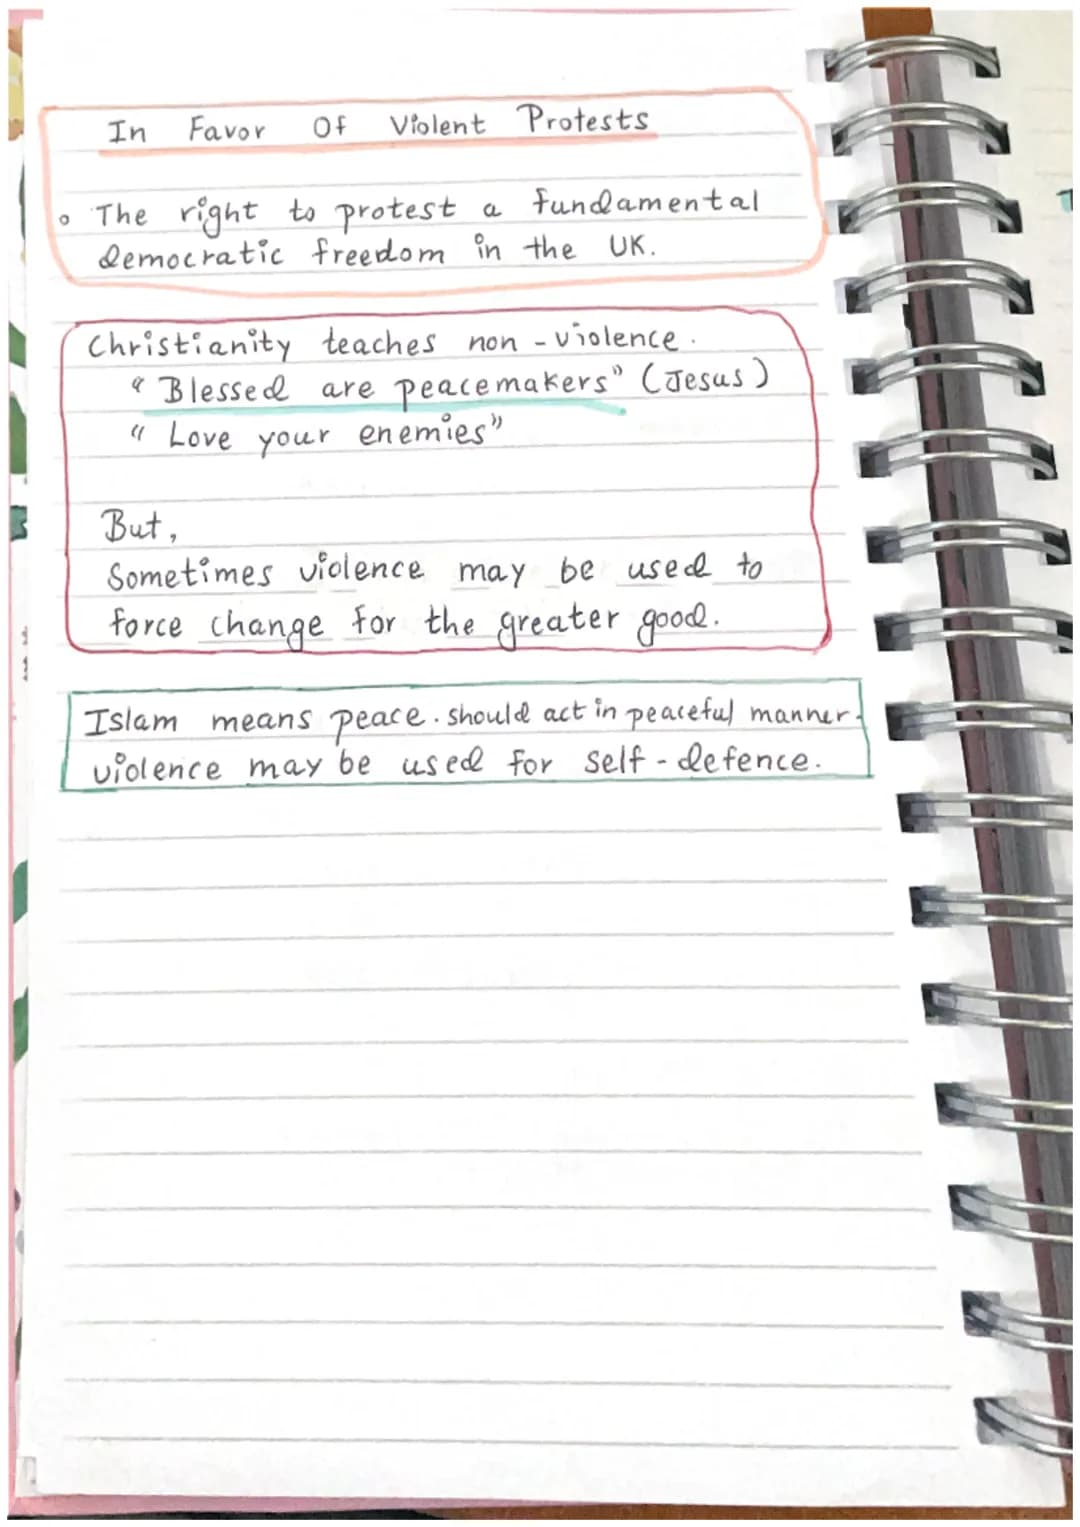 In Favor Of Violent Protests
◦ The right to protest a fundamental
democratic freedom in the UK.
Christianity teaches non-violence.
"Blessed are peacemakers" (Jesus)
"Love your enemies"
But,
Sometimes violence may be used to
force change for the greater good.
Islam means peace. should act in peaceful manner.
violence may be used for self-defence.